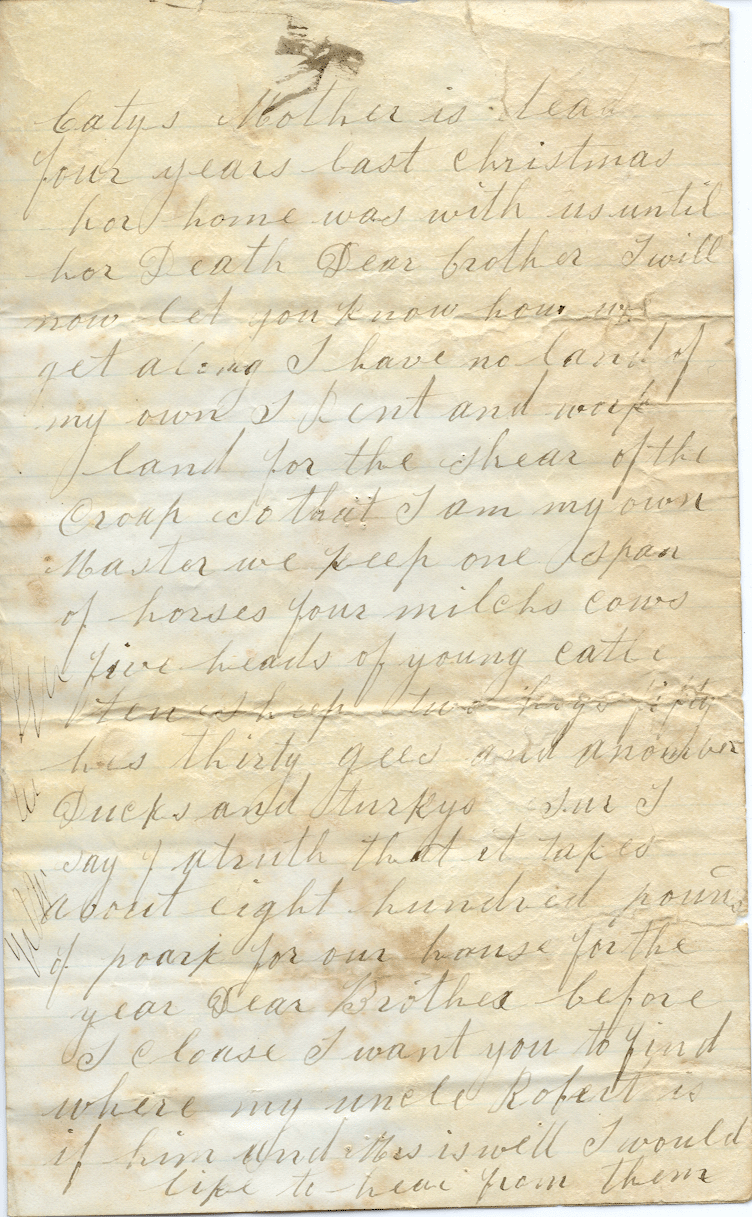 Catys Mother is dead
four years last christmas
hor home was with us until
hor Death Dear brother I will
now let you know how we
get along I have no land of
my own I Rent and work
land for the shear of the
Croap so that I am my own
Master we keep one span
of horses four milchs cows
five heads of young catle
ten sheep two hogs fifty
hes thirty gees and anoumber
Ducks and turkys sur I
say of atruth that it takes
about eight hundred pound
of poark for our house for the
year Dear Brother before
I cloase I want you to find
where my uncle Robert is
if him and Mrs is well I would
like to hear from them